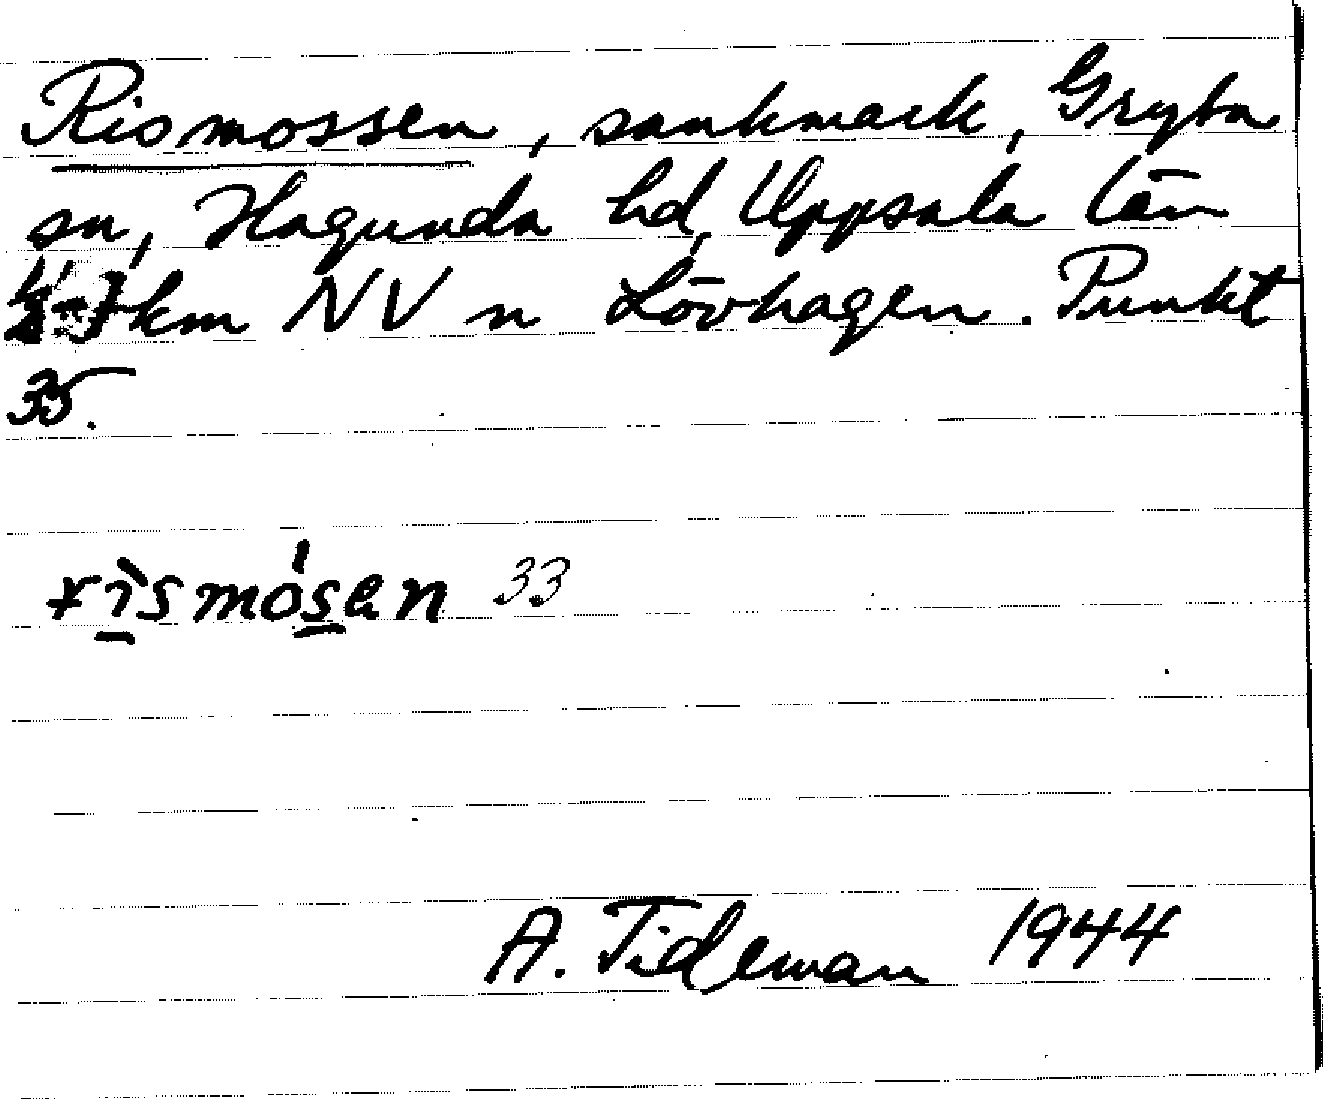 Rismossen, sankmark, Gryta
sn, Hagunda hd, Uppsala län
km NV n Lövhagen. Punkt
35.
rìsmósen 33
A. Tideman 1944